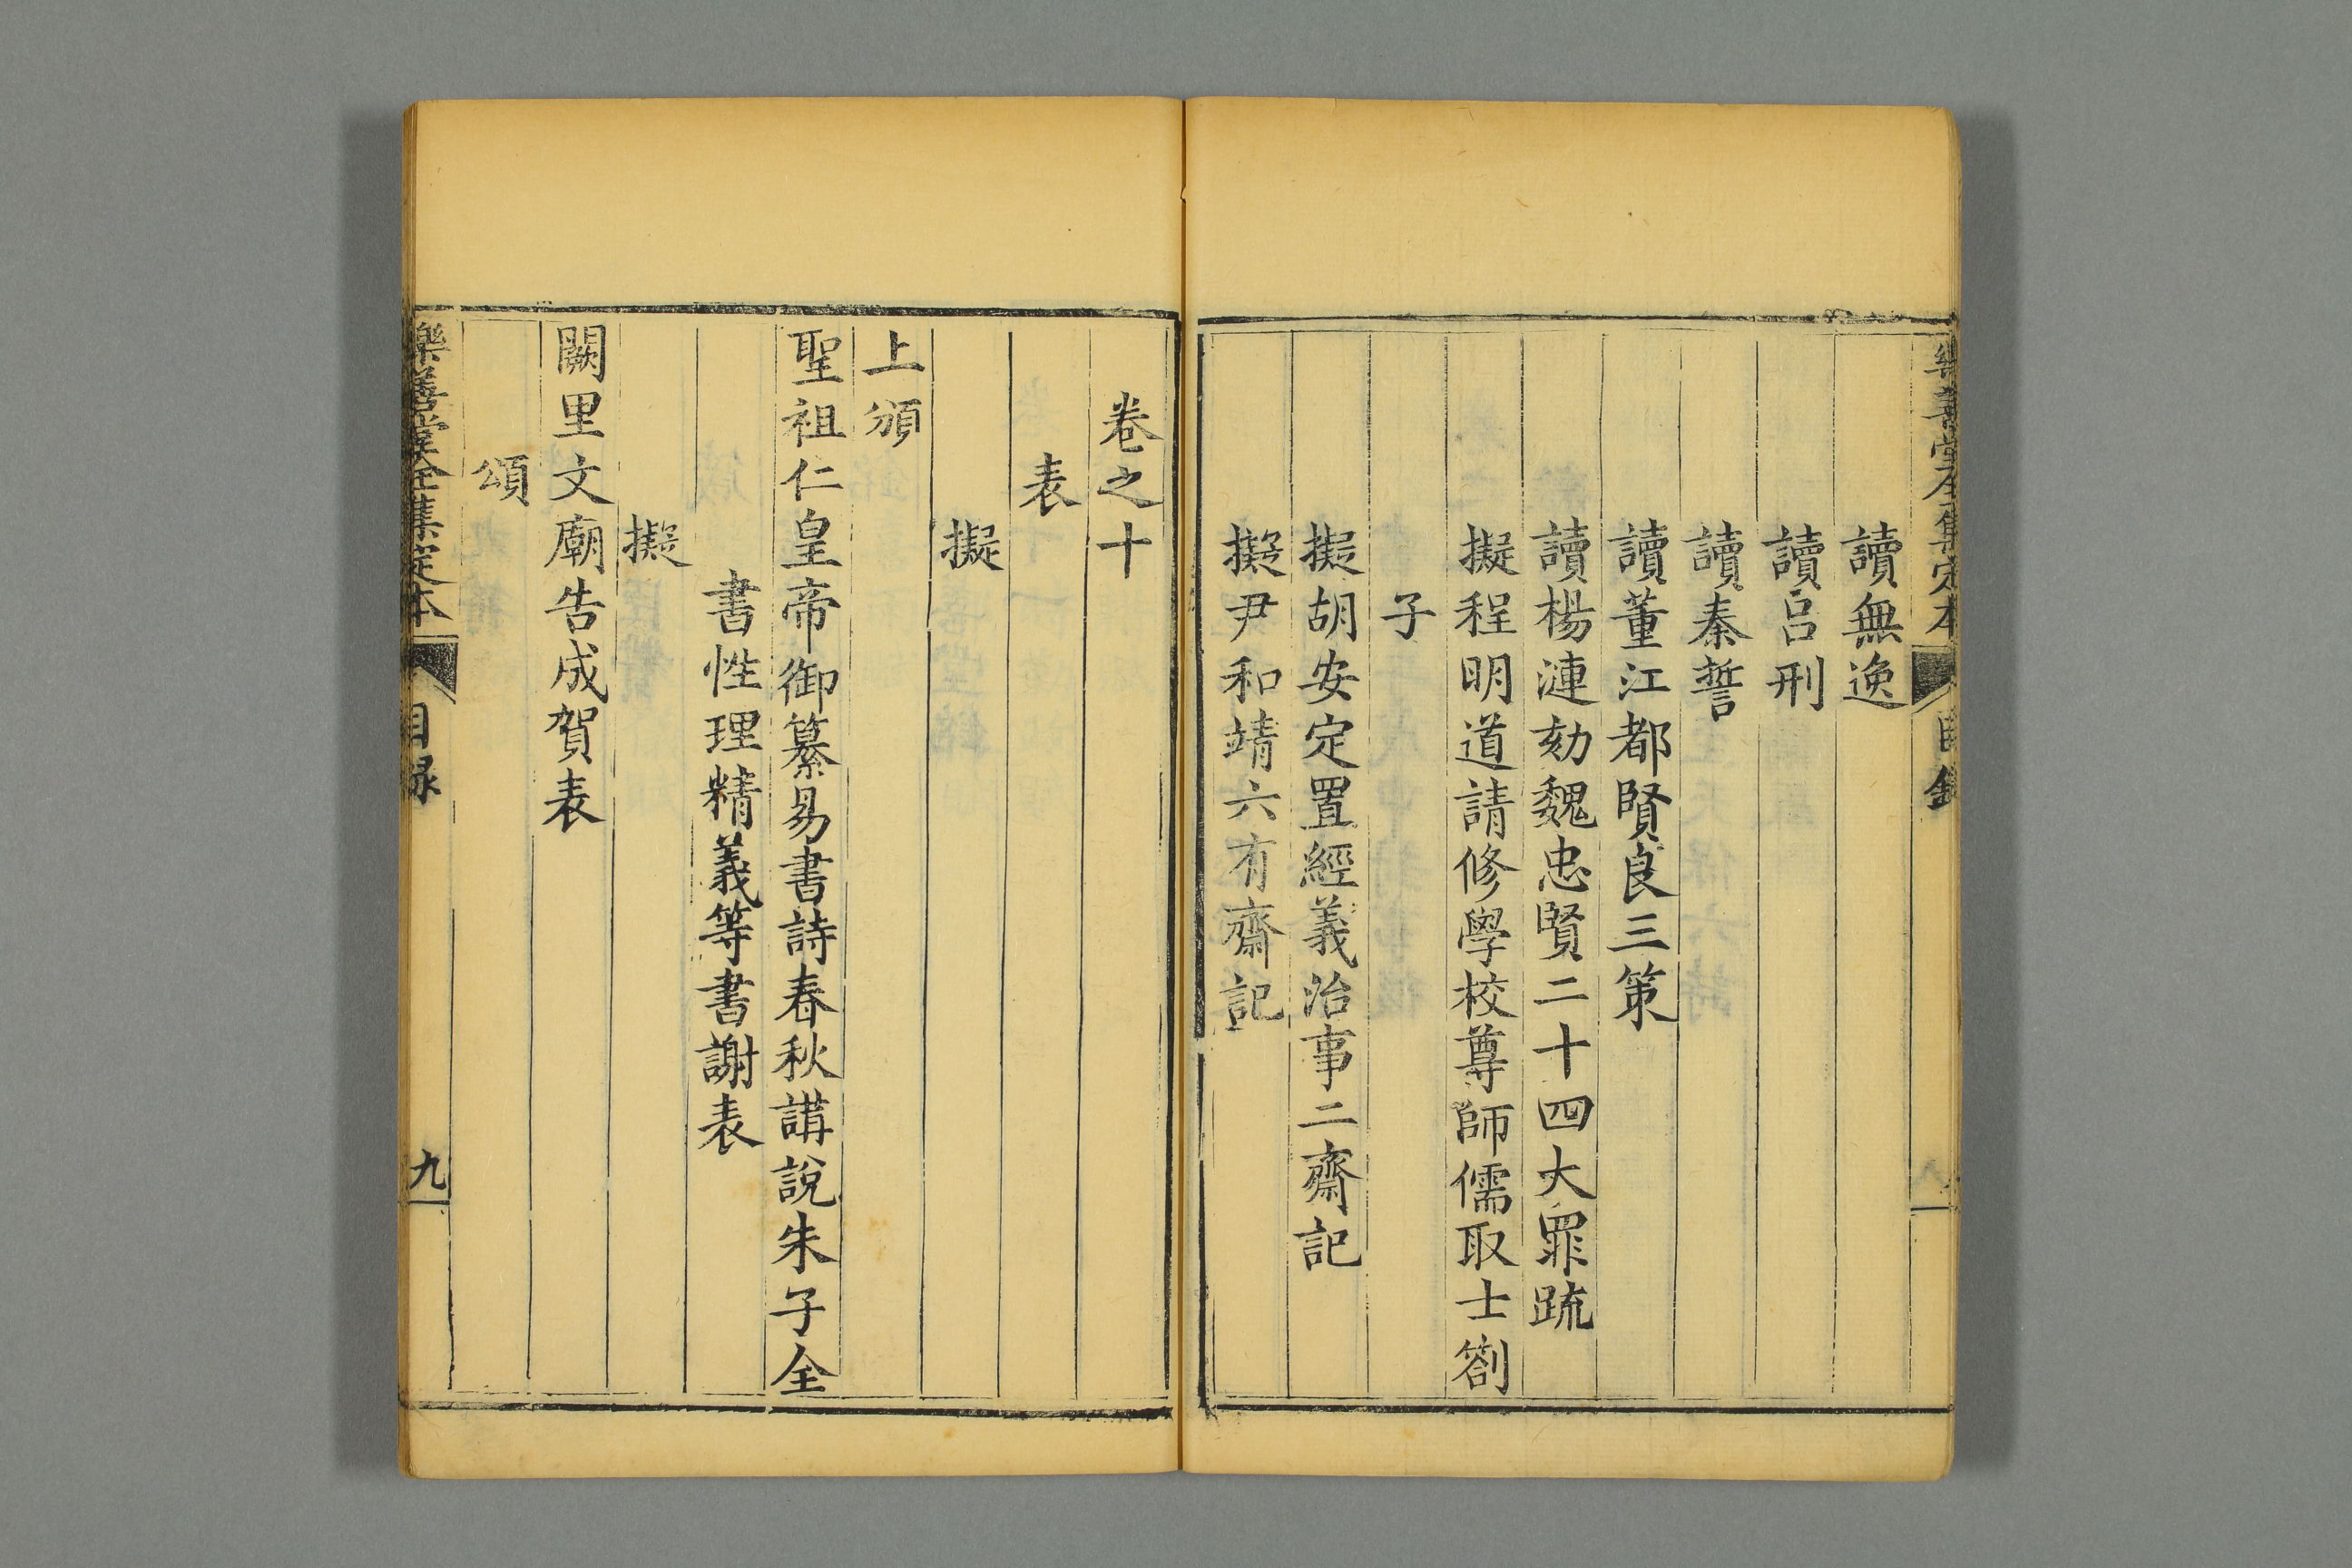 樂善堂全集定本
目錄
讀無逸
讀呂刑
讀秦誓
讀董江都賢良三策
讀楊漣劾魏忠賢二十四大罪疏
擬程明道請修學校尊師儒取士劄
子
擬胡安定置經義治事二齋記
擬尹和靖六有齋記
卷之十
表
擬
上頒
聖祖仁皇帝御纂易書詩春秋講說朱子全
書性理精義等書謝表
擬
闕里文廟告成賀表
頌
樂善堂全集定本
目錄
九